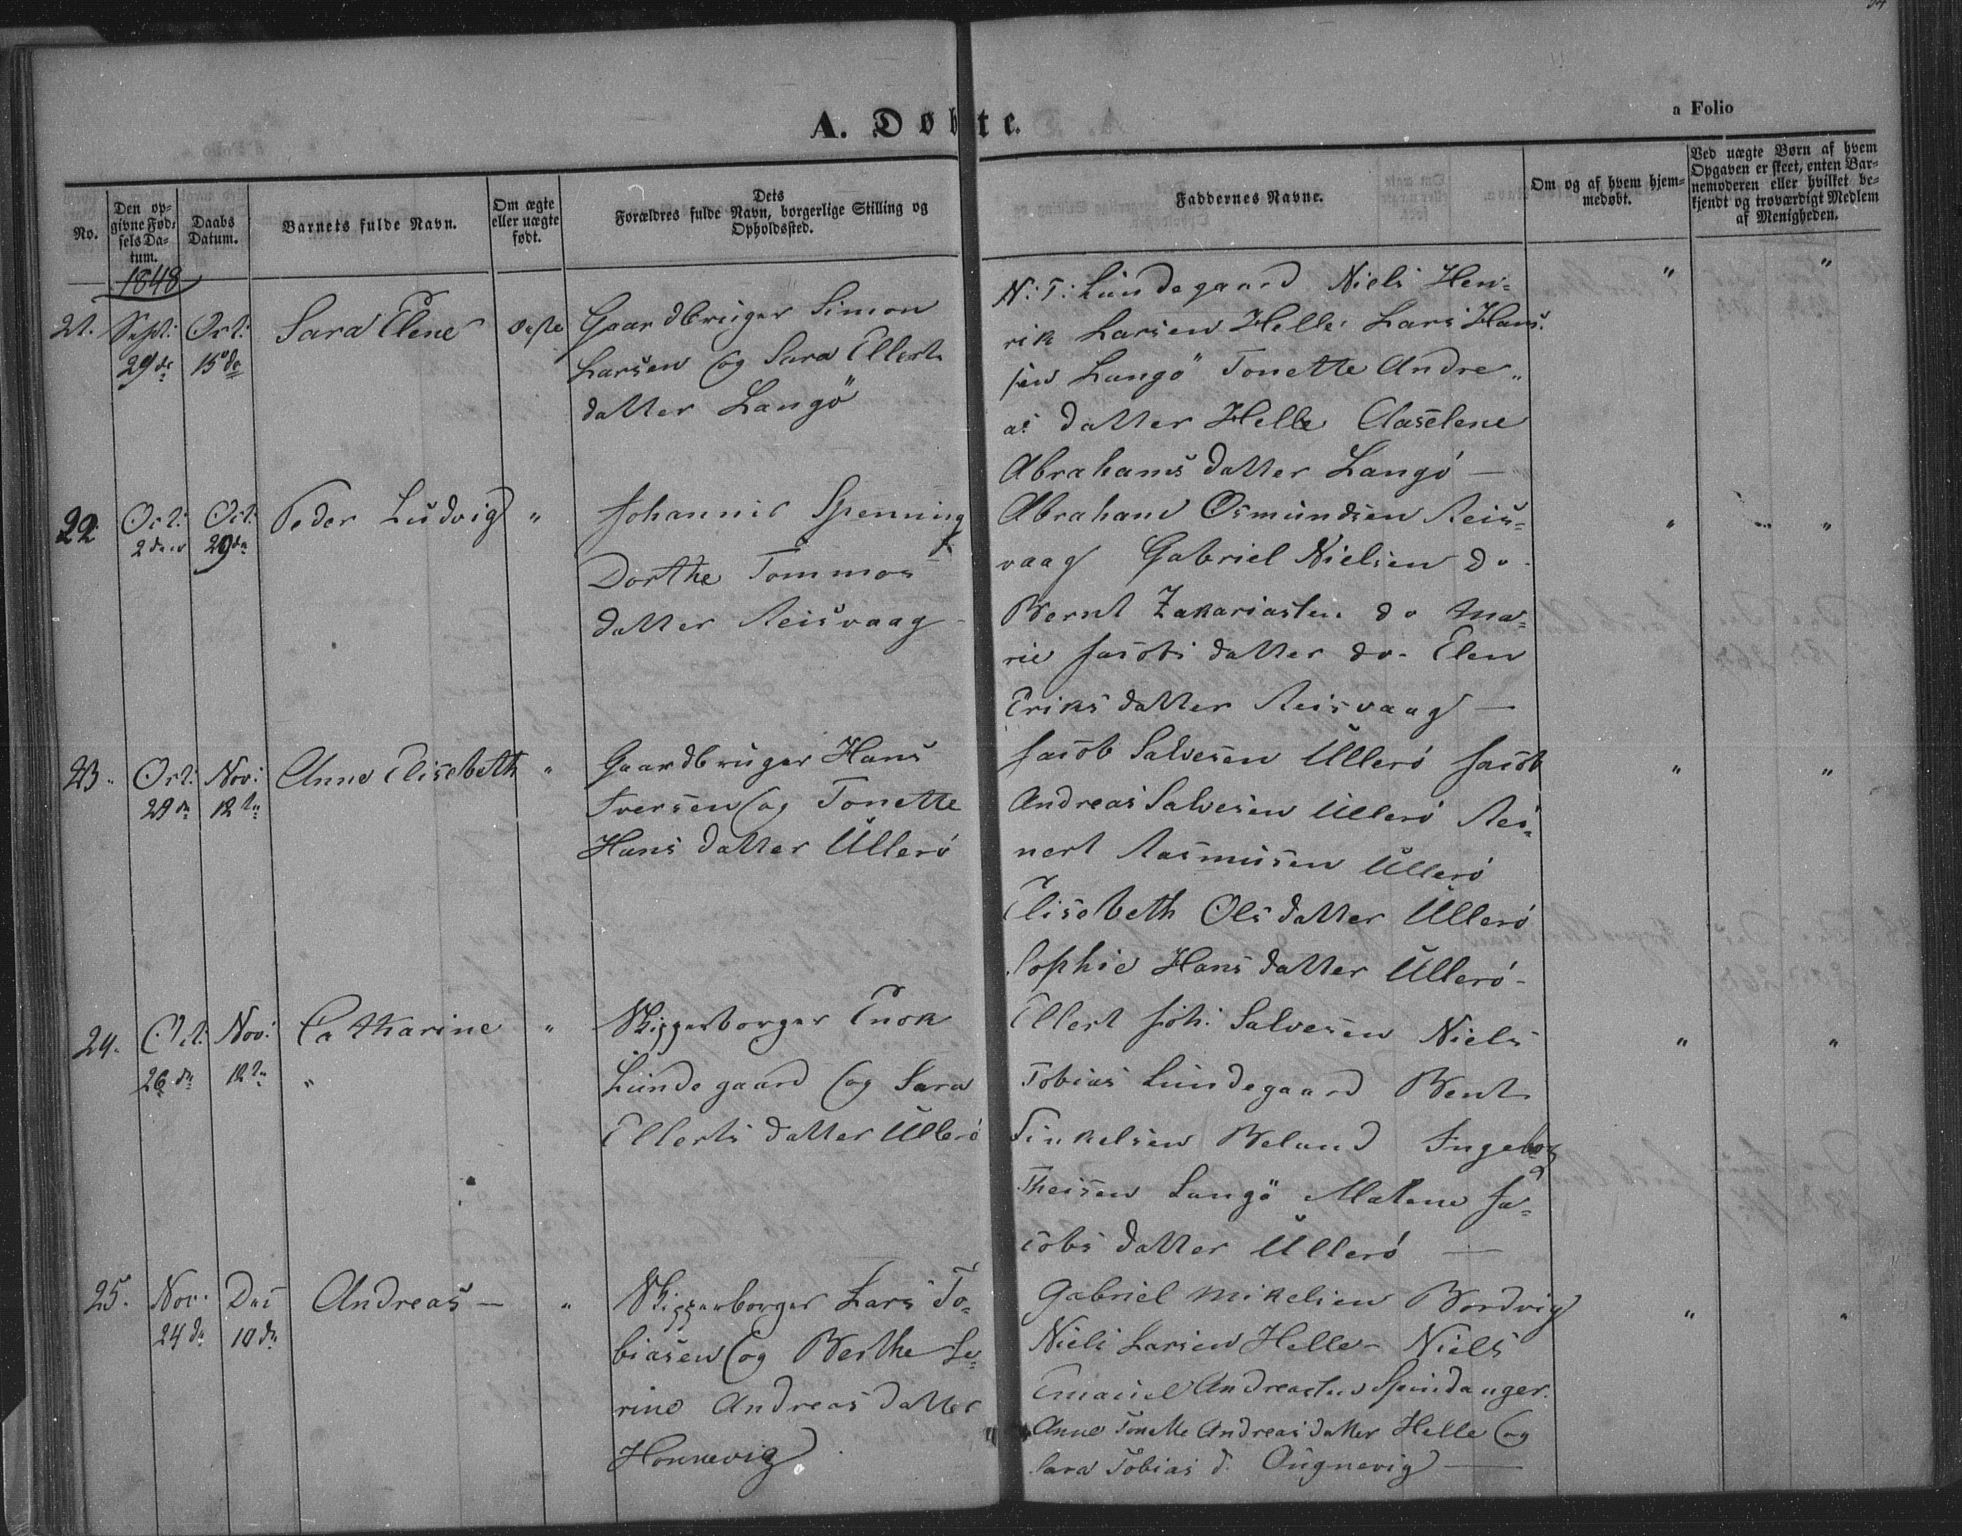 A. Døbte.
a Folio
No.
Den op-
givne Fød-
sels Da-
tum.
Daabs
Datum.
Barnets fulde Navn.
Om ægte
eller uægte
født.
Dets
Forældres fulde Navn, borgerlige Stilling og
Opholdssted.
Faddernes Navne.
Om og af hvem hjem-
medøbt.
Ved uægte Børn af hvem
Opgaven er skeet, enten Bar-
nemoderen eller hvilket be-
kjendt og troværdigt Medlem
af Menigheden.
1848
21. Sept: Oct: Sara Elene ægte Gaardbruger Simon
29de 15de Larsen og Sara Ellerts
datter Langö
N: T: Lundegaard Niels Hen-
rik Larsen Helle Lars Han-
sen Langö Tonette Andre-
as datter Helle Aaselene
Abrahams datter Langö —
" "
22 Oct: Oct: Peder Ludvig " Johannes Spenning
2den 29de Dorthe Tommas
datter Reisvaag
Abraham Osmundsen Reis-
vaag Gabriel Nielsen do
Bernt Zakariasen do Ma-
rie Jacobs datter do. Elen
Eriks datter Reisvaag —
" "
23. Oct: Nov: Anne Elisebeth " Gaardbruger Hans
29de 12te Iversen og Tonette
Hans datter Ullerö
Jacob Salvesen Ullerö Jacob
Andreas Salvesen Ullerö Rei-
nert Rasmusen Ullerö
Elisebeth Ols datter Ullerö
Sophie Hans datter Ullerö -
" "
24. Oct: Nov: Catharine " Skipperborger Enok
26de 12te " Lundegaard og Sara
Ellerts datter Ullerö
Ellert Joh: Salvesen Niels
Tobias Lundegaard Bent
Tinkelsen Beland Ingeborg
Theisen Langö Malene Ja-
cobs datter Ullerö —
" "
25. Nov. Dec Andreas — " Skipperborger Lars To-
24de 10de biasen og Berthe Se-
rine Andreas datter
Honnevig.
Gabriel Mikelsen Bordvig
Niels Larsen Helle - Niels
Emanuel Andreasen Spindanger.
Anne Tonette Andreas datter Helle og
Sara Tobias d. Ougnevig —
" "